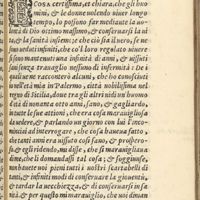 COSA certissima, et chiara, che gli huo
mini, & le donne volendo viuer lungo
tempo, lo possono far mediante la uo
lontà di Dio ottimo massimo, & conseruarsi la ui
ta, & sanità insieme; e che ciò sia il uero, se ne
son ueduti infiniti, che co'l loro regolato viuere
sono mantenuti sani infiniti di anni, & usciti
senza trauaglio nessuno di infermità: De i
quali ue ne raccontero alcuni, che ho conosciuti
nell'età mia in Palermo, città nobilissima nel
regno di Sicilia, doue tra gli altri uidi un huomo
di età di nonanta otto anni, sano, & gagliardo
in tutte le sue attioni, che era cosa marauigliosa
da uedere, & parlando un giorno con lui l'inco
minciai ad interrogare, che cosa haueua fatto,
che tanti anni era uissuto così sano, & prospero-
so; & egli ridendo, mi disse, che si marauigliaua
di me, che li domandassi tal cosa; & soggiunse,
uoi hauete uoi pieni tutti i uostri scartabelli di
rimedij, & infiniti modi di conseruare la giouentù,
& tardar la uecchiezza, & di conseruar la sani-
tà, & per questo mi marauiglio, che uoi mi